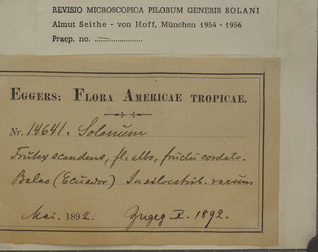 REVISIO MICROSCOPICA PILORUM GENERIS SOLANI
Almut Seithe - von Hoff, München 1954 - 1956
Praep. no.
EGGERS: FLORA AMERICAE TROPICAE.
Nr. 14641. Solanum
Frutex scandens, fl. albo, fructu cordato.
Balao (Ecuador) In silvestrib. rarum
Mai. 1892. X. 1892.